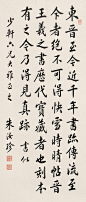 東晉至今近千年書跡傳流至
今者絕不可得快雪時晴帖晉
王羲之書歷代寶藏者也刻本
有之今乃得見真跡書似
少軒六兄大雅正之
朱汝珍